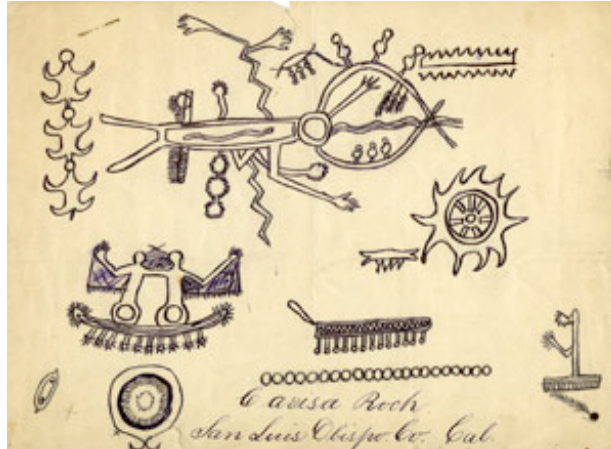 Carisa Rock
San Luis Obispo. Co. Cal.